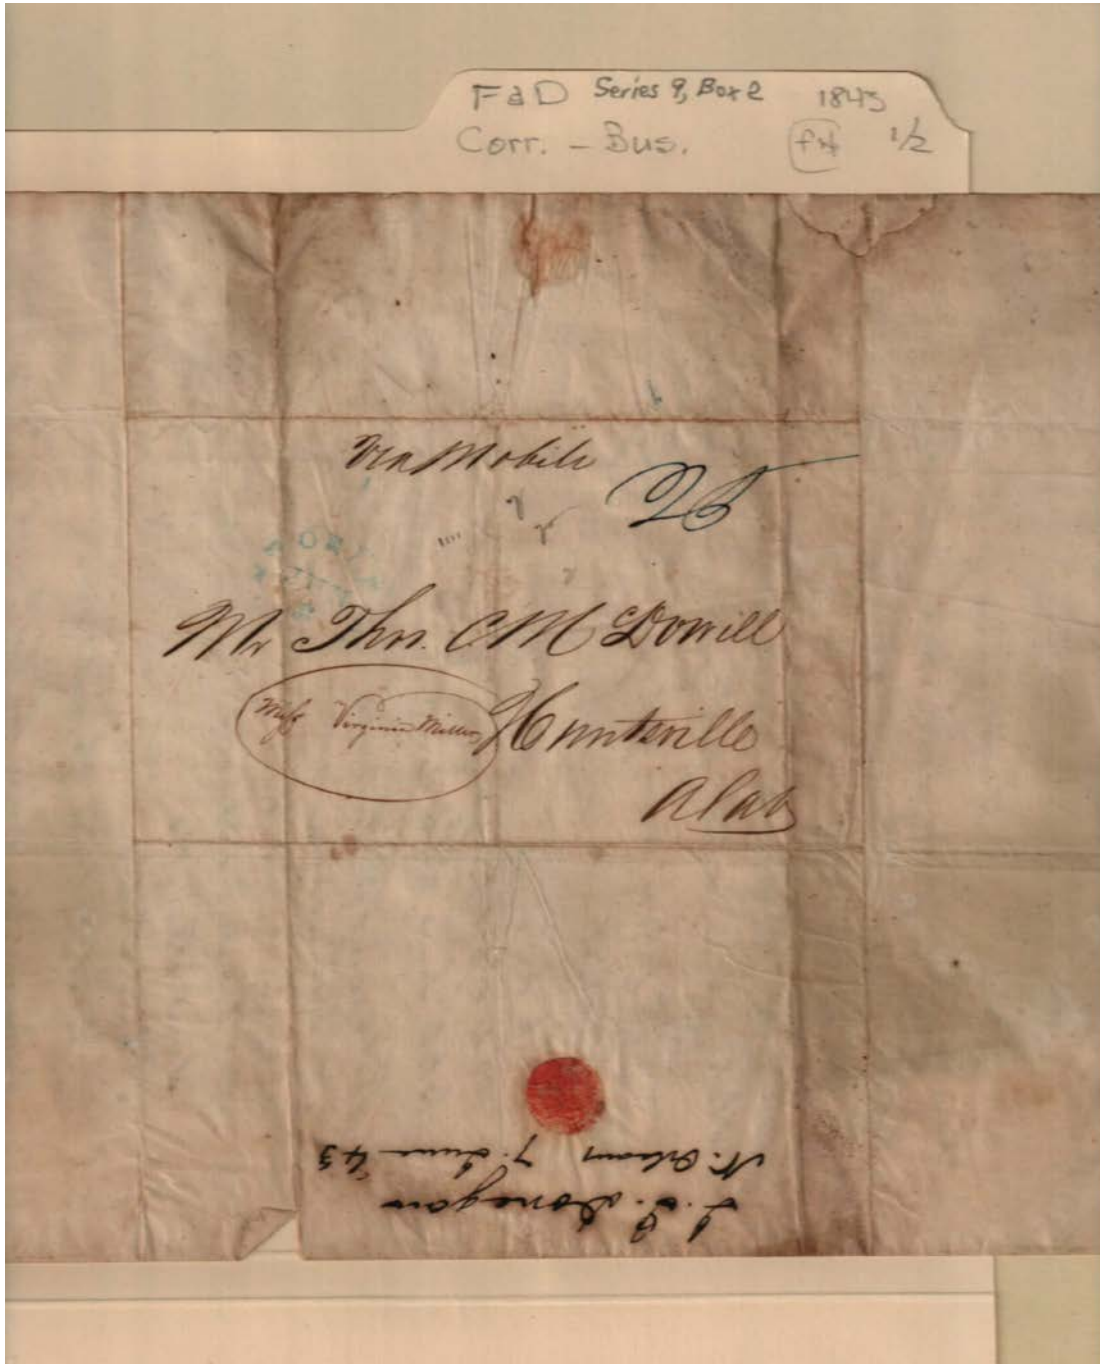 F & D Series 9, Box 2 1843
Corr. - Bus. 1/2
Via Mobile
25
Mr Thos. C McDowell
Miss Virginia Miller
Huntsville
Alab
J. J. Donegan
N. Orleans 7. June 43